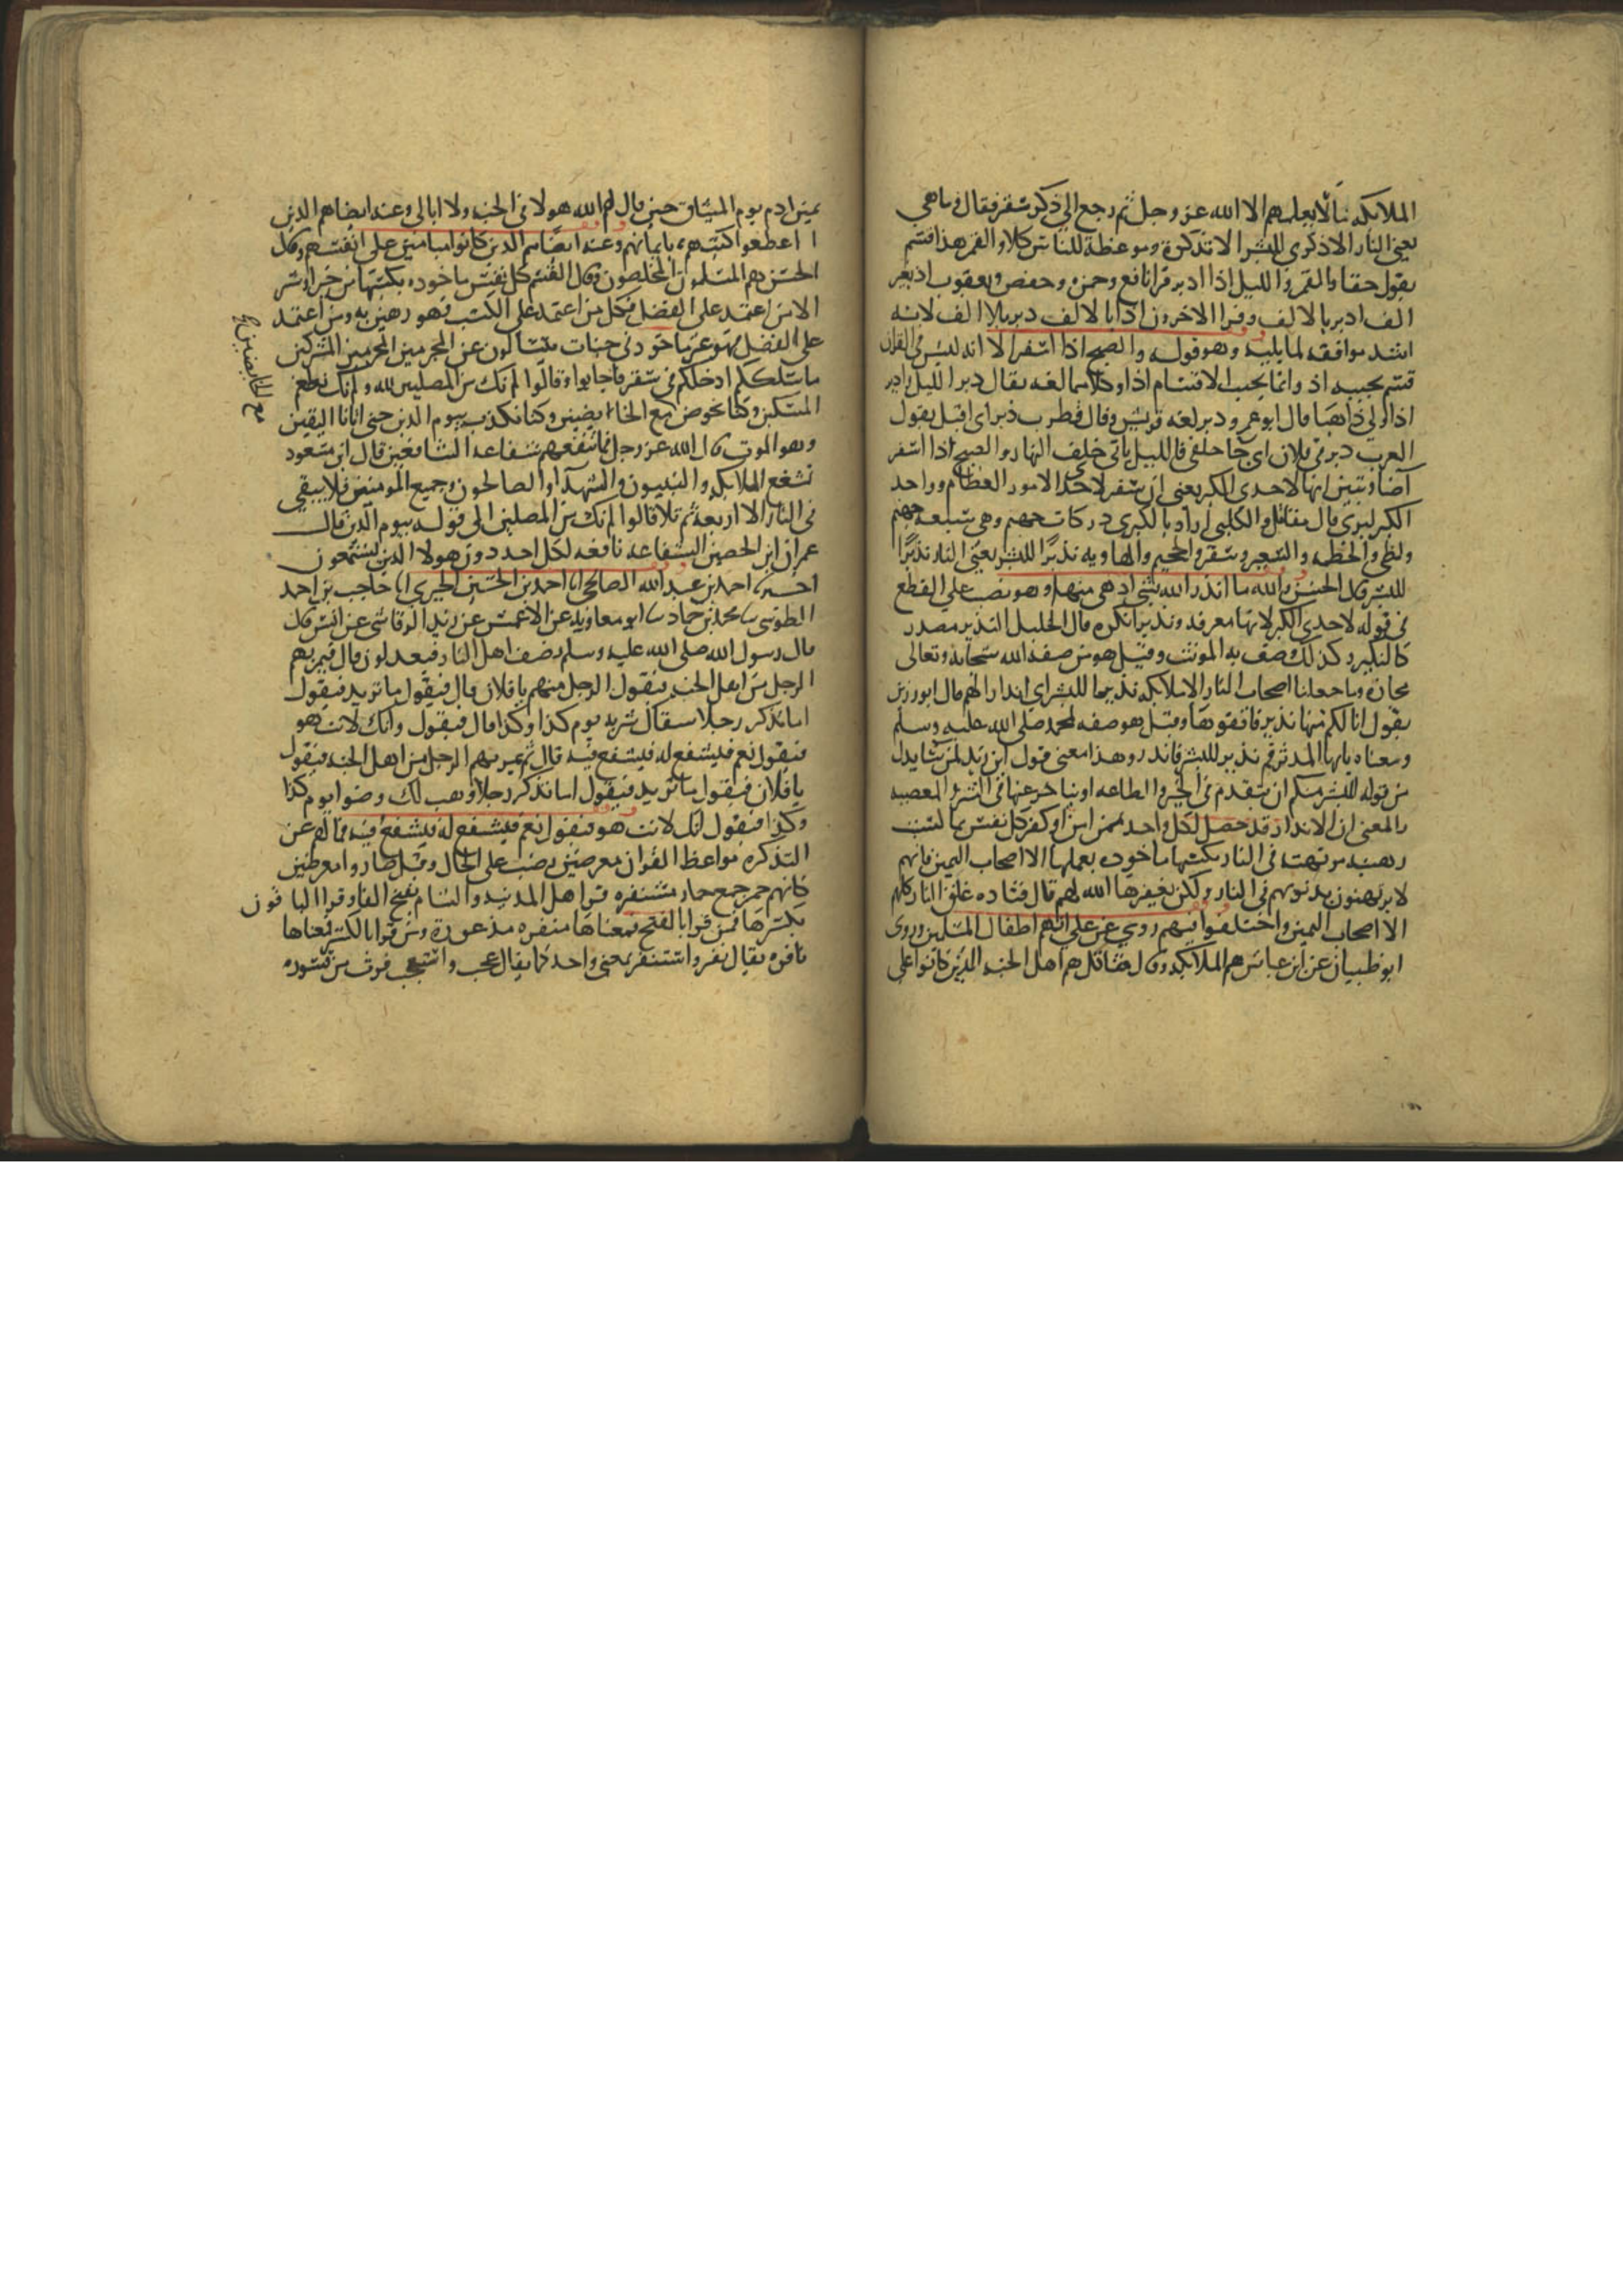 الملائكه مما لا يعلمهم الا الله عز وجل ثم رجع الى ذكر سقر فقال وما هي
يعني النار الا ذكرى للبشر الا تذكرة وموعظة للناس كلا والقمر هذا قسم
يقول حقا والقمر والليل اذا ادبر قرا نافع وحمزه وحفص ويعقوب اذ بغير
الف ادبر بالالف وقرا الاخرون اذا بالالف دبر بلا الف لانه
اشد موافقه لما يليه وهو قوله والصبح اذا اسفر الا انه ليس في القران
قسم بجنبه اذ وانما بجنب الاقسام اذا وكلاهما لغه يقال دبر الليل وادبر
اذا ولى ذاهبا قال ابو عمرو دبر لغه قريش وقال قطرب دبر اى اقبل يقول
العرب دبرني فلان اى جا خلفي فالليل ياتي خلف النهار والصبح اذا اسفر
اضا وتبين انها لاحدى الكبر يعني ان سقر لاحدى الامور العظام وواحد
الكبر كبرى قال مقاتل والكلبي اراد بالكبرى دركات جهنم وهي سبعه جهنم
ولظى والحطمه والسعير وسقر والجحيم والهاويه نذيرا للبشر يعني النار نذيرا
للبشر قال الحسن والله ما انذر الله بشي ادهى منها وهو نصب على القطع
في قوله لاحدى الكبر لانها معرفه ونذيرا نكره قال الخليل النذير مصدر
كالنكير ولذلك وصف به المونث وقيل هو من صفه الله سبحانه وتعالى
مجازه وما جعلنا اصحاب النار الا ملائكه نذيرا للبشر اى انذارا لهم قال ابو رزين
يقول انا لكم منها نذير فاتقوها وقيل هو صفه لمحمد صلى الله عليه وسلم
ومعناه يايها المدثر قم نذيرا للبشر فانذر وهذا معنى قول ابن زيد لمن شا بدل
من قوله للبشر منكم ان يتقدم في الخير والطاعه او يتاخر عنها في الشر والمعصيه
والمعنى ان الانذار قد حصل لكل واحد ممن امن او كفر كل نفس بما كسبت
رهينه مرتهنه في النار بكسبها ماخوذه بعملها الا اصحاب اليمين فانهم
لا يرتهنون بذنوبهم في النار ولكن يغفرها الله لهم قال قتاده علق الناس كلهم
الا اصحاب اليمين واختلفوا فيهم روي عن علي انهم اطفال المسلمين وروى
ابو ظبيان عن ابن عباس هم الملائكه وقال مقاتل هم اهل الجنه الذين كانوا على
يمين ادم يوم الميثاق حين قال لهم الله هولا في الجنه ولا ابالى وعنه ايضا هم الذين
اعطوا كتبهم بايمانهم وعنه ايضا هم الذين كانوا ميامين على انفسهم وقال
الحسن هم المسلمون المخلصون وقال القسم كل نفس ماخوذه بكسبها من خير او شر
الا من اعتمد على الفضل فكل من اعتمد على الكسب فهو رهين به ومن اعتمد
على الفضل فهو غير ماخوذ في جنات يتسالون عن المجرمين المجرمين المشركين
ما سلككم ادخلكم في سقر فاجابوا وقالوا لم نك من المصلين لله ولم نك نطعم
المسكين وكنا نخوض مع الخائضين وكنا نكذب بيوم الدين حتى اتانا اليقين
وهو الموت قال الله عز وجل فما تنفعهم شفاعه الشافعين قال ابن مسعود
تشفع الملائكه والنبيون والشهدا والصالحون وجميع المومنين فلا يبقى
في النار الا اربعه ثم تلا قالوا لم نك من المصلين الى قوله بيوم الدين قال
عمران ابن الحصين الشفاعه نافعه لكل احد دون هولا الذين تسمعون
اخبرنا احمد بن عبد الله الصالحي انا احمد بن الحسين الحيري انا حاجب بن احمد
الطوسي نا محمد بن حماد نا ابو معاويه عن الاعمش عن يزيد الرقاشي عن انس قال
قال رسول الله صلى الله عليه وسلم يصف اهل النار فيعدلون قال فيمر بهم
الرجل من اهل الجنه فيقول الرجل منهم يا فلان قال فيقول ما تريد فيقول
اما تذكر رجلا سقاك شربه يوم كذا وكذا قال فيقول وانك لانت هو
فيقول نعم فيشفع له فيشفع فيه قال ثم يمر بهم الرجل من اهل الجنه فيقول
يا فلان فيقول ما تريد فيقول اما تذكر رجلا وهب لك وضوا يوم كذا
وكذا فيقول انك لانت هو فيقول نعم فيشفع له فيشفع فيه فما لهم عن
التذكره مواعظ القران معرضين نصب على الحال وقيل صاروا معرضين
كانهم حمر جمع حمار مستنفره قرا اهل المدينه والشام بفتح الفا وقرا الباقون
بكسرها فمن قرا بالفتح فمعناها منفره مذعورة ومن قرا بالكسر فمعناها
نافره يقال نفر واستنفر بمعنى واحد كما يقال عجب واستعجب فرت من قسوره